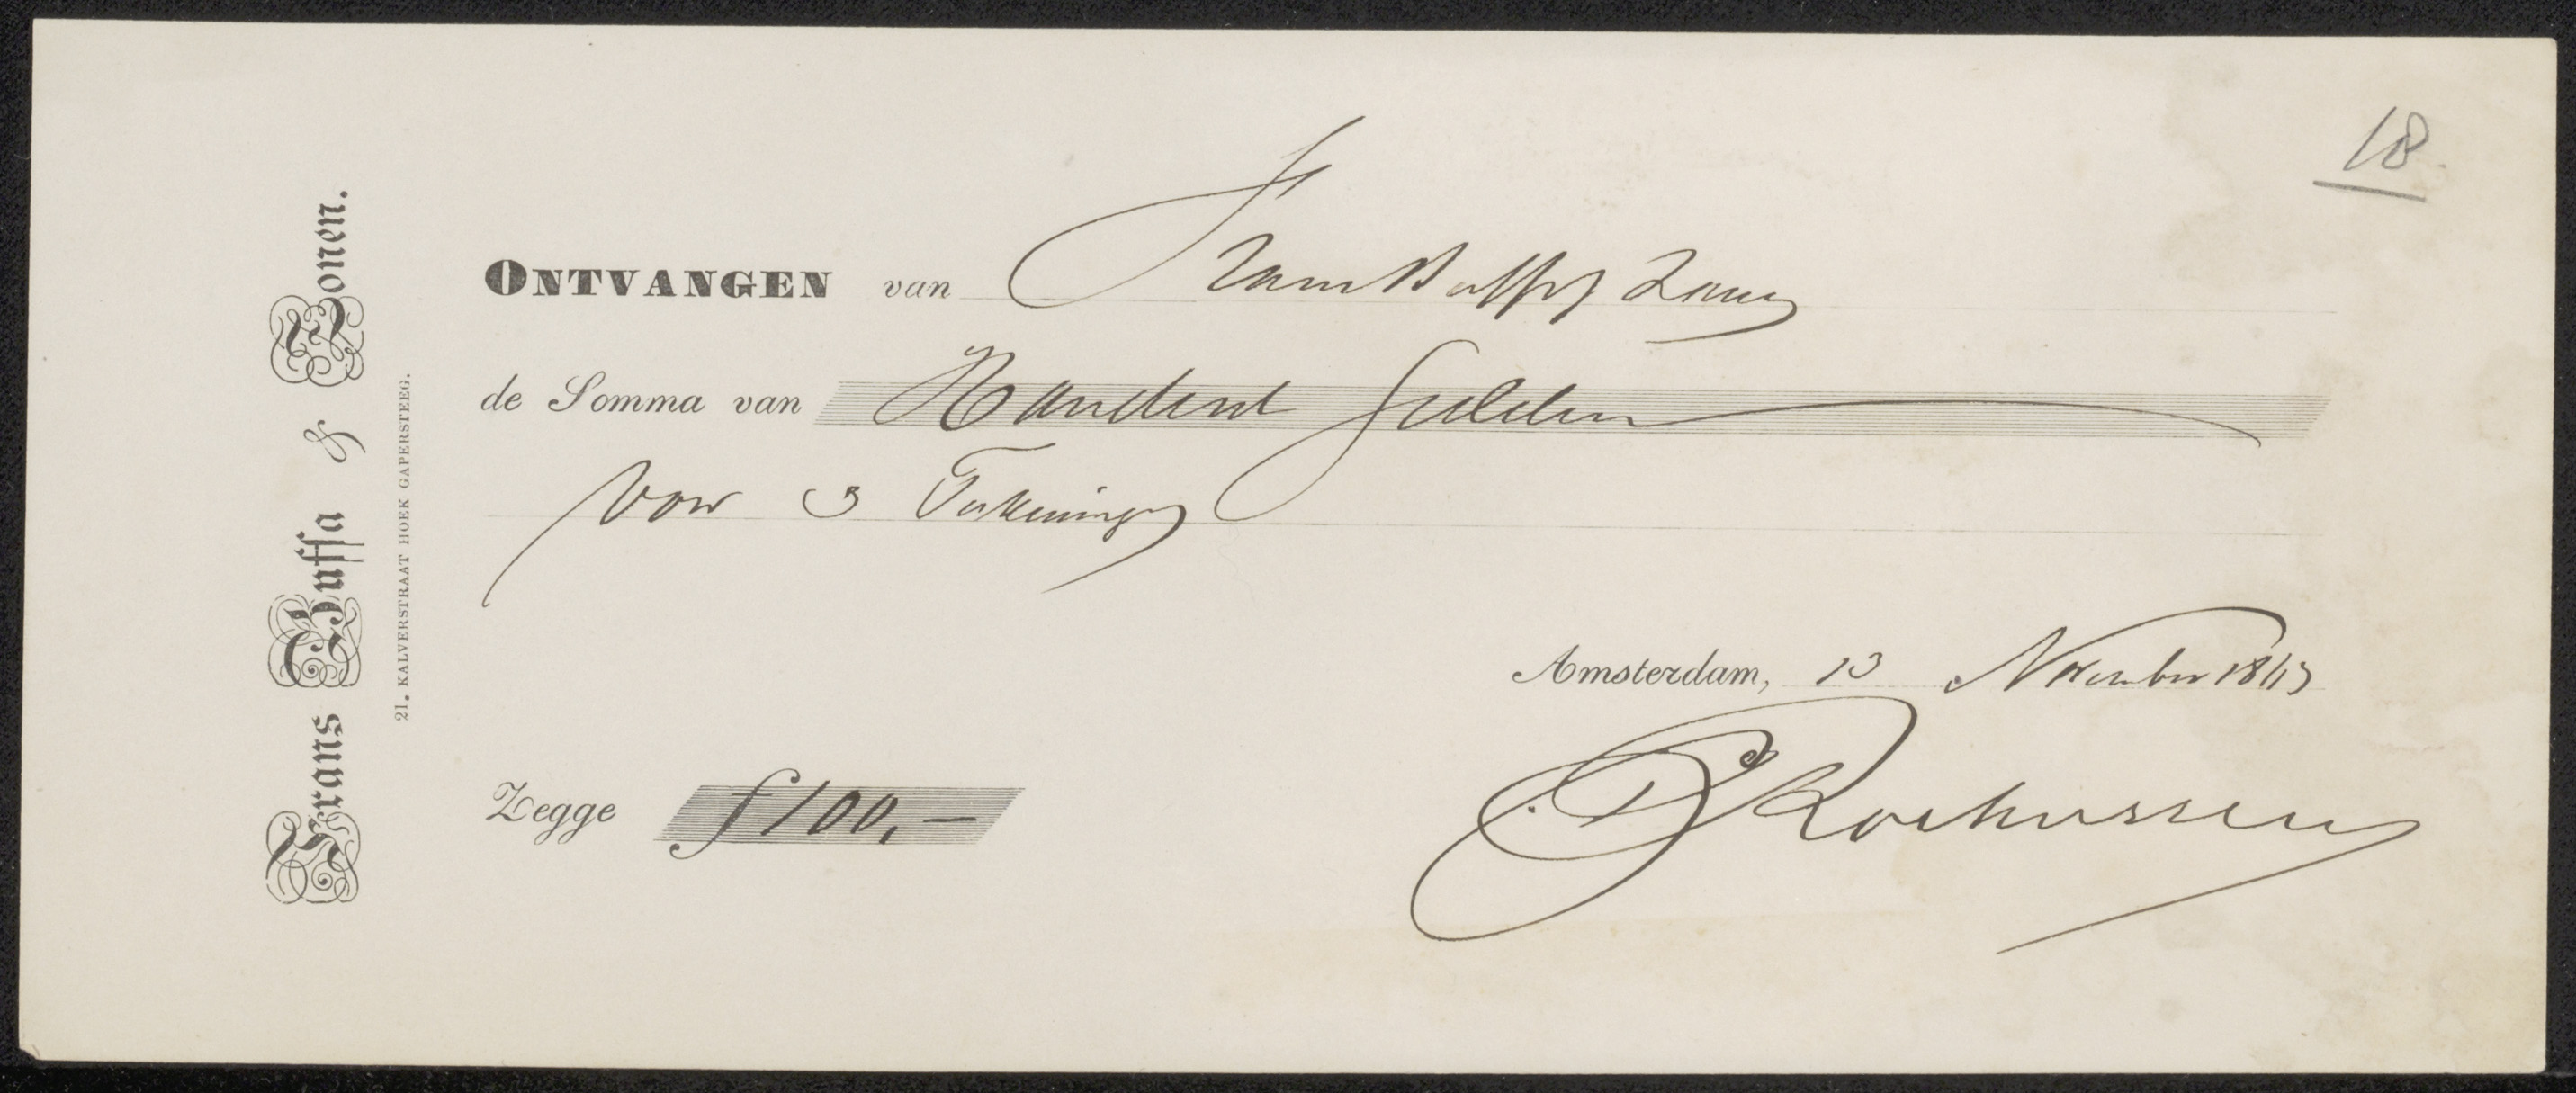 18
Frans Buffa & Zonen.
21. KALVERSTRAAT HOEK GAPERSTEEG.
ONTVANGEN van Frans Buffa Zonen
de Somma van Hondert Gulden
voor 3 Tekeningen
Amsterdam, 13 November
Zegge f 100,—
Rochussen